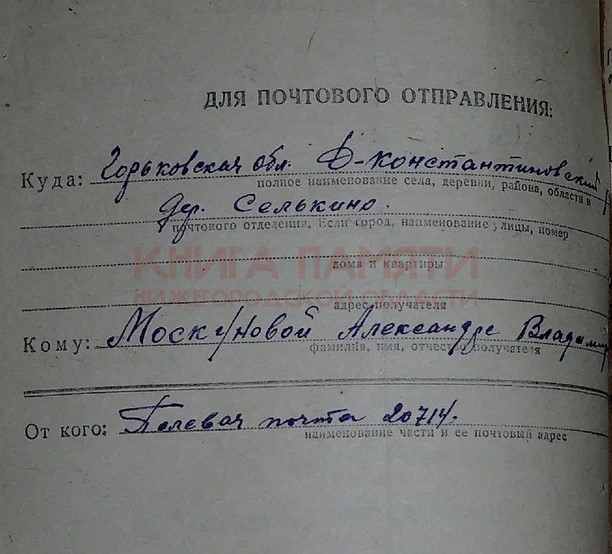 ДЛЯ ПОЧТОВОГО ОТПРАВЛЕНИЯ:
Куда: Горьковская обл. Д-Константиновский
полное наименование села, деревни, района, области и
дер. Селькино.
почтового отделения. Если город, наименование улицы, номер
КНИГА ПАМЯТИ
дома и квартиры
НИЖЕГОРОДСКОЙ ОБЛАСТИ
адрес получателя
Кому: Александре Владимир
фамилия, имя, отчество получателя
От кого: Полевая почта 20714.
наименование части и ее почтовый адрес